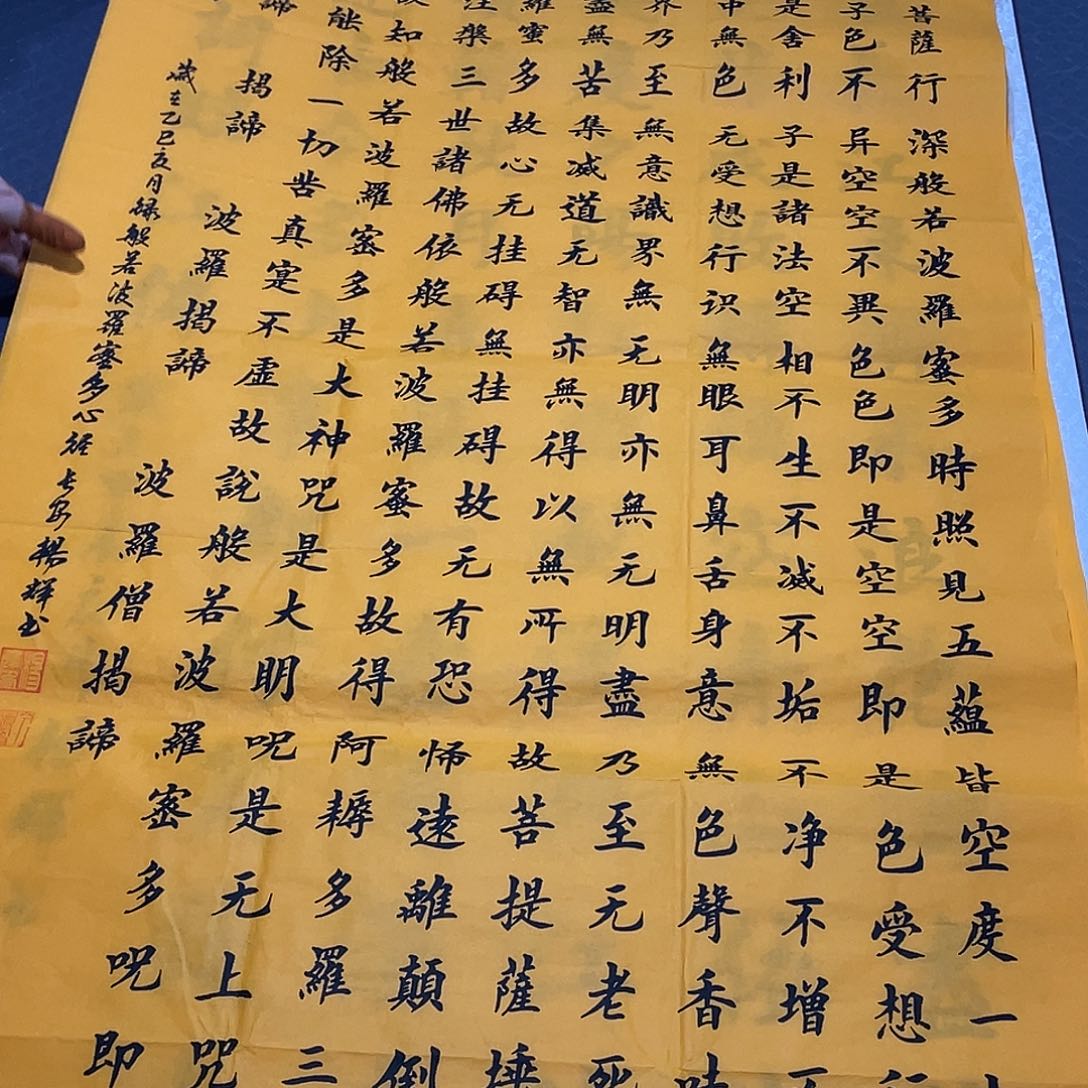 菩薩行深般若波羅蜜多時照見五蘊皆空度一
子色不异空空不異色色即是空空即是色受想行
是舍利子是諸法空相不生不滅不垢不净不增不
中無色无受想行识無眼耳鼻舌身意無色聲香味
界乃至無意識界無无明亦無无明盡乃至无老死
盡無苦集滅道无智亦無得以無所得故菩提薩埵
羅蜜多故心无挂碍無挂碍故无有恐怖遠離顛倒
涅槃三世諸佛依般若波羅蜜多故得阿耨多羅三
故知般若波羅蜜多是大神咒是大明咒是无上咒
能除一切苦真寔不虛故說般若波羅蜜多咒即
諦 揭諦 波羅揭諦 波羅僧揭諦
歲在乙巳亥月録般若波羅蜜多心経長安楊輝书